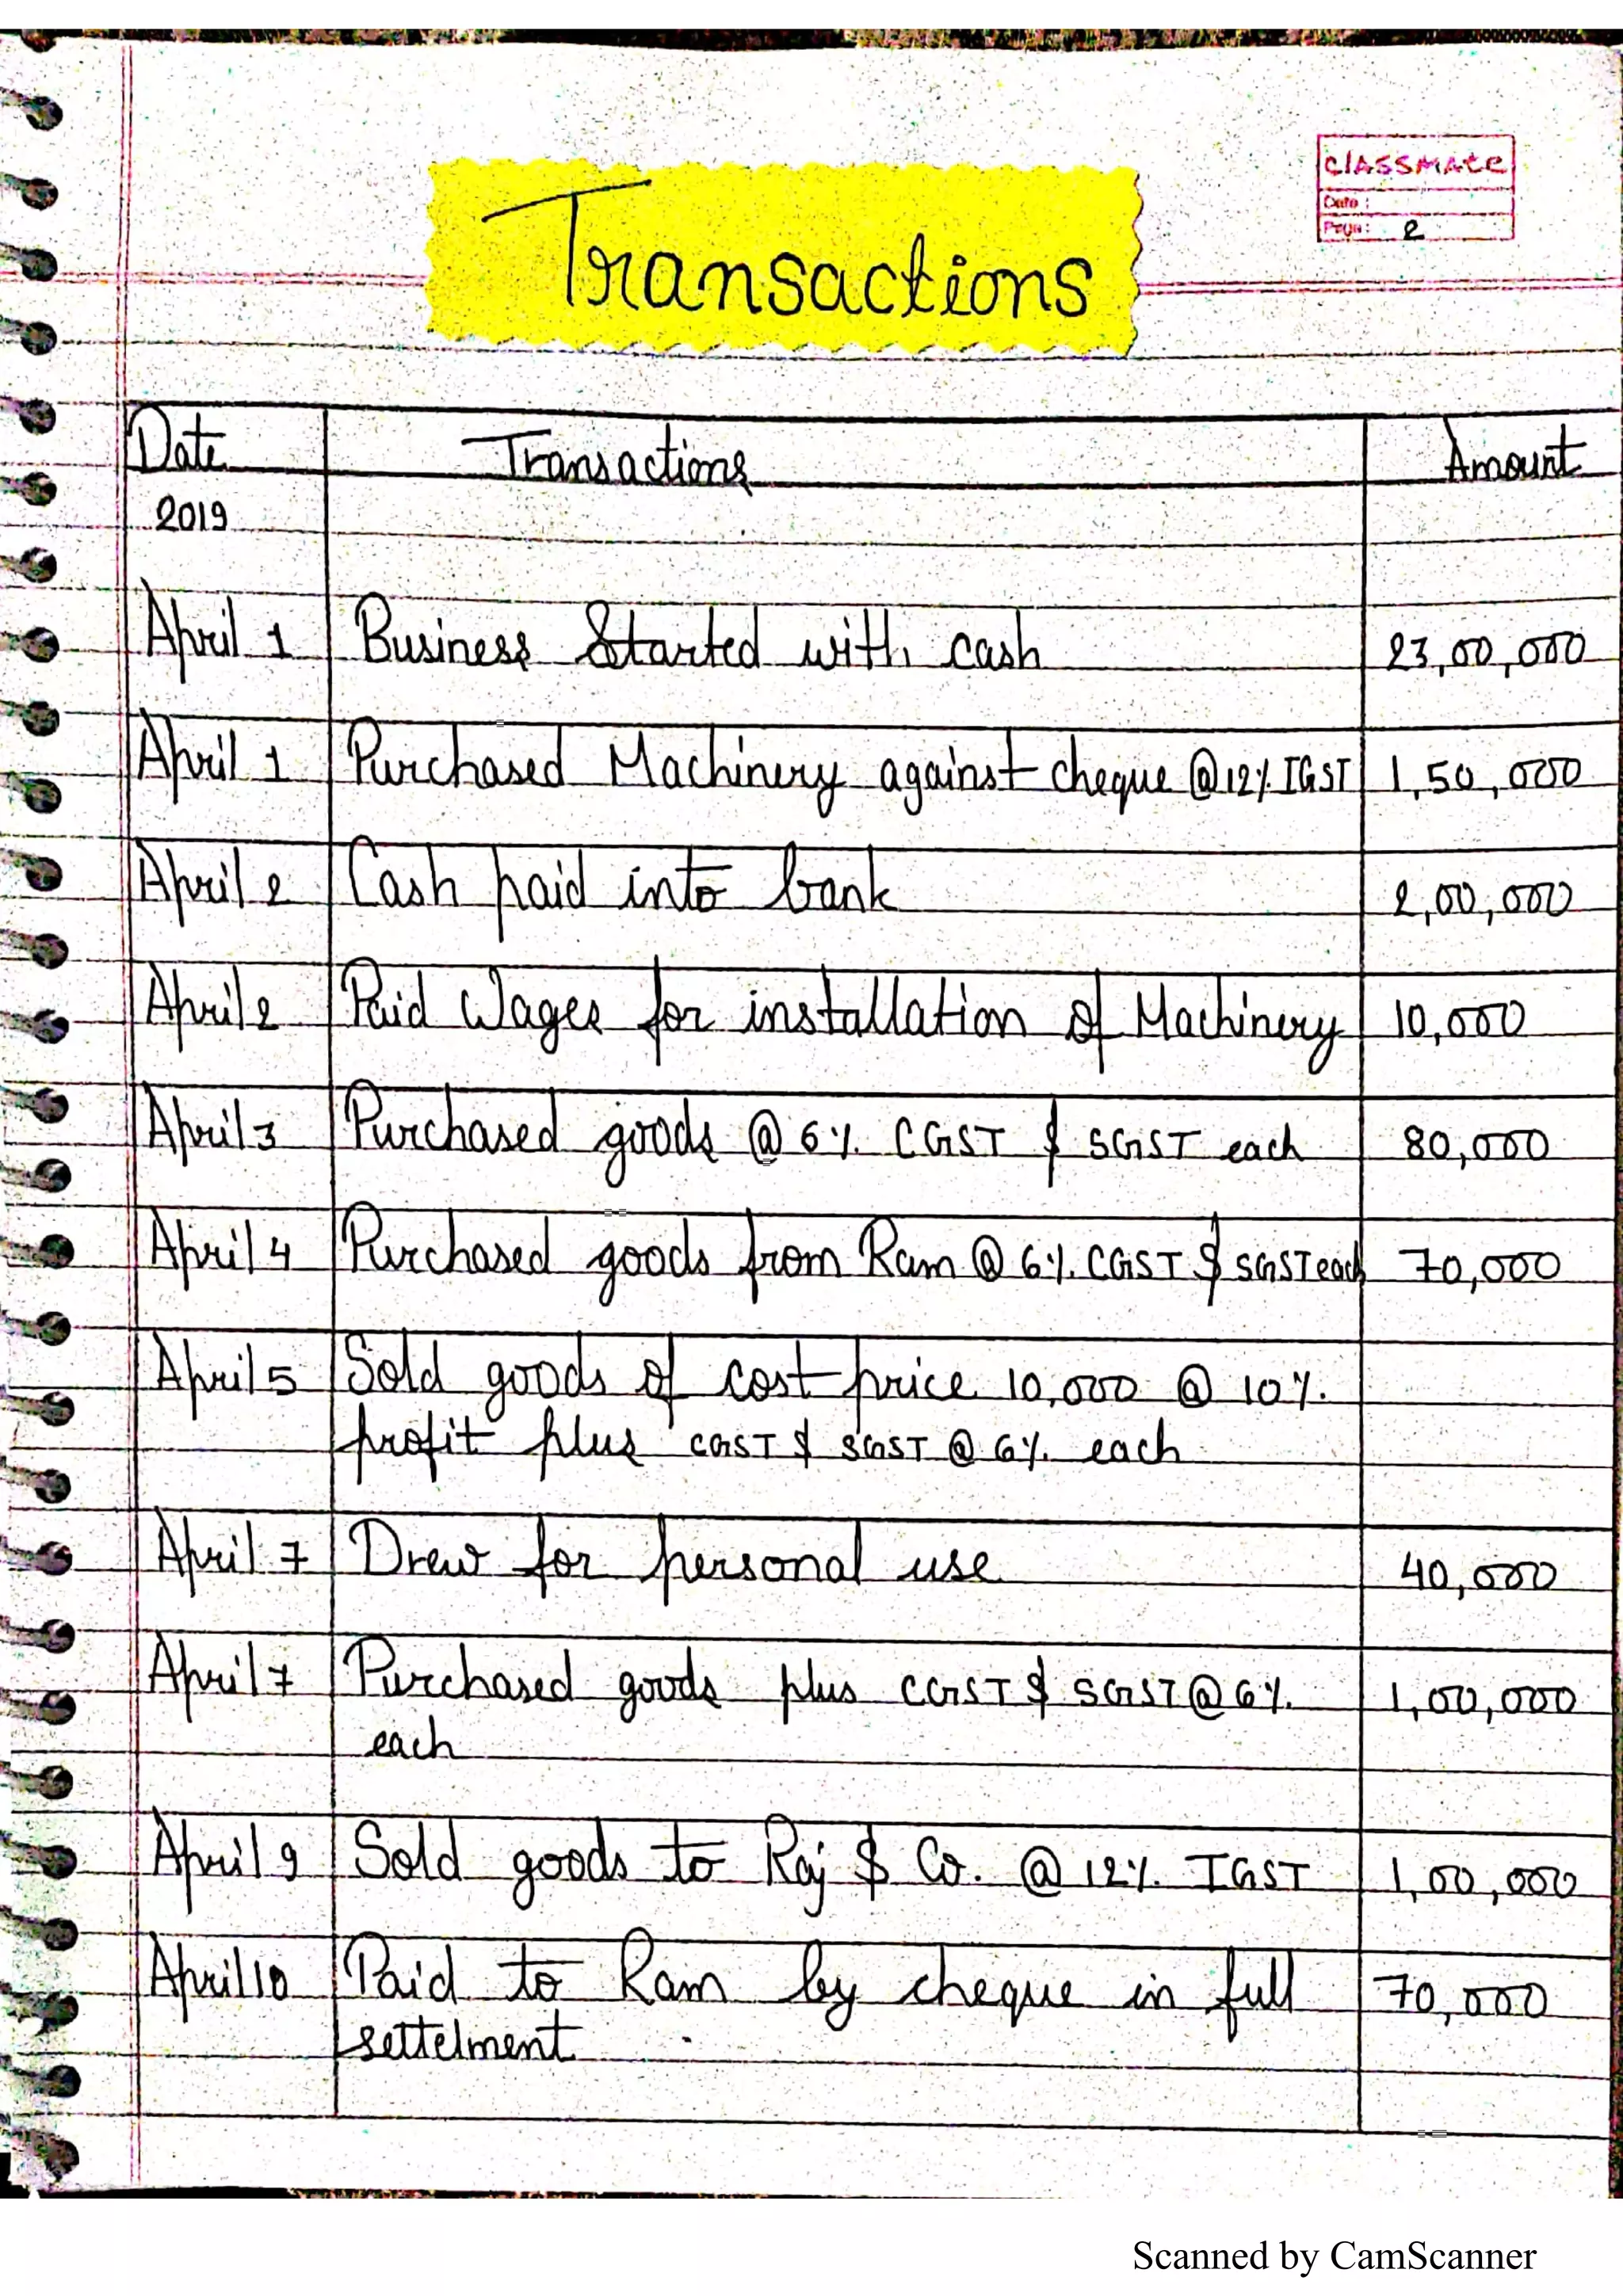 classmate
Date :
Page : 2
Transactions
Date Transactions Amount
2019
April 1 Business Started with cash 23,00,000
April 1 Purchased Machinery against cheque @12% IGST 1,50,000
April 2 Cash paid into bank 2,00,000
April 2 Paid Wages for installation of Machinery 10,000
April 3 Purchased goods @ 6% CGST & SGST each 80,000
April 4 Purchased goods from Ram @ 6% CGST & SGST each 70,000
April 5 Sold goods of cost price 10,000 @ 10%
profit plus CGST & SGST @ 6% each
April 7 Drew for personal use 40,000
April 7 Purchased goods plus CGST & SGST @ 6% 1,00,000
each
April 9 Sold goods to Raj & Co. @ 12% IGST 1,00,000
April 10 Paid to Ram by cheque in full 70,000
settelment
Scanned by CamScanner